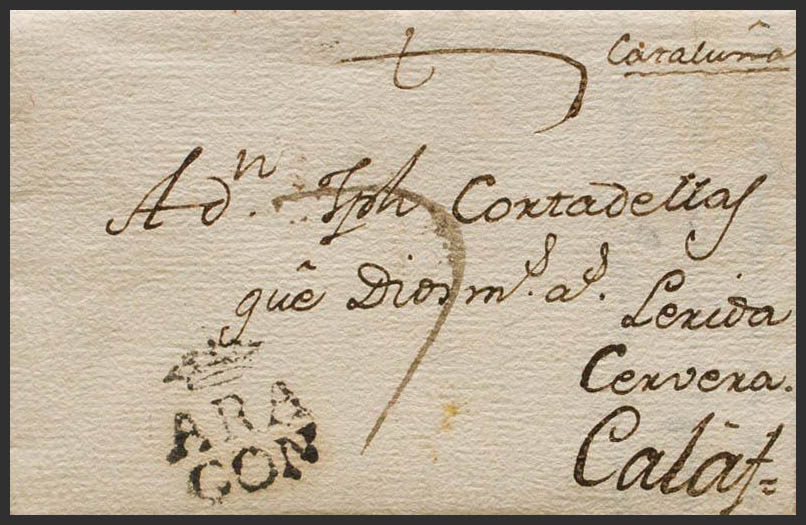 Cataluña
A dn. Jph Cortadellas
que Dios ms. as. Lerida
Cervera.
Calaf=
ARA
GON